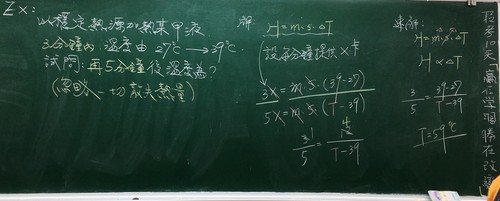 Ex:
以穩定熱源加熱某甲液
3分鐘內溫度由27℃→39℃
試問:再5分鐘後溫度為?
(忽略一切散失熱量)
解:
H=m·s·ΔT
設每分鐘提供X卡
3X=m·s·(39-27)
5X=m·s·(T-39)
3/5=12/T-39
速解:
H=m·s·ΔT
H∝ΔT
3/5=39-27/T-39
T=59℃